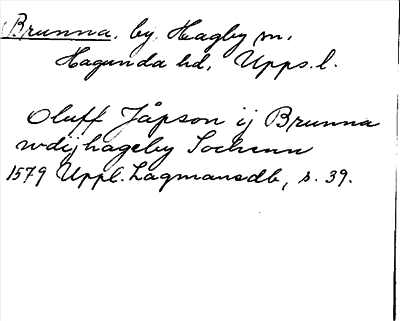 Brunna. by. Hagby sn.
Hagunda hd, Upps. l.
Oluff Jåpson ij Brunna
wdij hageby Sockenn
1579 Uppl. Lagmansdb, s. 39.